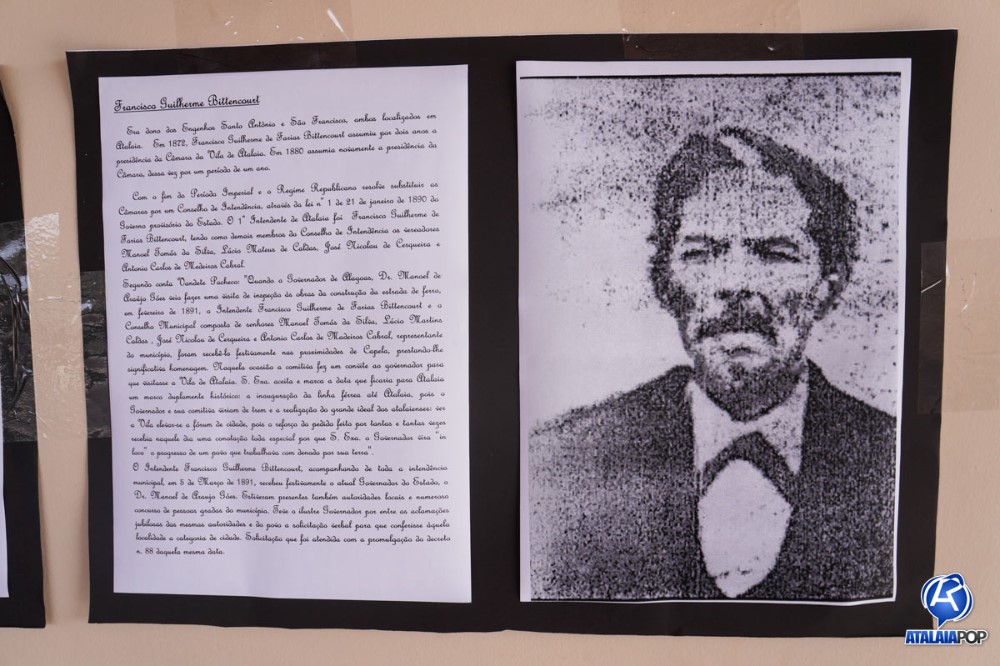 Francisco Guilherme Bittencourt
Era dono dos Engenhos Santo Antônio e São Francisco, ambos localizados em
Atalaia. Em 1872, Francisco Guilherme de Farias Bittencourt assumiu por dois anos a
presidência da Câmara da Vila de Atalaia. Em 1880 assumiu novamente a presidência da
Câmara, dessa vez por um período de um ano.
Com o fim do Período Imperial e o Regime Republicano resolve substituir as
Câmaras por um Conselho de Intendência, através da lei n° 1 de 21 de janeiro de 1890 do
Governo provisório do Estado. O 1° Intendente de Atalaia foi Francisco Guilherme de
Farias Bittencourt, tendo como demais membros do Conselho de Intendência os vereadores
Manoel Tomás da Silva, Lúcio Mateus de Caldas, José Nicolau de Cerqueira e
Antonio Carlos de Medeiros Cabral.
Segundo conta Vandete Pacheco: "Quando o Governador de Alagoas, Dr. Manoel de
Araújo Góes veio fazer uma visita de inspeção às obras da construção da estrada de ferro,
em fevereiro de 1891, o Intendente Francisco Guilherme de Farias Bittencourt e o
Conselho Municipal composto de senhores Manoel Tomás da Silva, Lúcio Martins
Caldas , José Nicolau de Cerqueira e Antonio Carlos de Madeiros Cabral, representante
do município, foram recebê-lo festivamente nas proximidades de Capela, prestando-lhe
significativa homenagem. Naquela ocasião a comitiva fez um convite ao governador para
que visitasse a Vila de Atalaia. S. Exa. aceita e marca a data que ficaria para Atalaia
um marco duplamente histórico: a inauguração da linha férrea até Atalaia, pois o
Governador e sua comitiva viriam de trem e a realização do grande ideal dos atalaienses: ver
a Vila elevar-se a fórum de cidade, pois o reforço do pedido feito por tantas e tantas vezes
recebia naquele dia uma conotação toda especial por que S. Exa. o Governador vira "in
loco" o progresso de um povo que trabalhava com denodo por sua terra".
O Intendente Francisco Guilherme Bittencourt, acompanhando de toda a intendência
municipal, em 5 de Março de 1891, recebeu festivamente o atual Governador do Estado, o
Dr. Manoel de Araujo Góes. Estiveram presentes também autoridades locais e numeroso
concurso de pessoas gradas do município. Teve o ilustre Governador por entre as aclamações
jubilosas das mesmas autoridades e do povo a solicitação verbal para que conferisse àquela
localidade a categoria de cidade. Solicitação que foi atendida com a promulgação do decreto
n. 88 daquela mesma data.
ATALAIAPOP